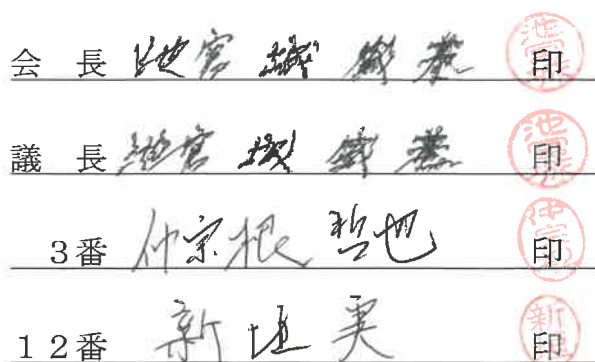 会 長 池宮城 印
議 長 池宮城 印
3番 仲宗根 哲也 印
12番 新垣 実 印